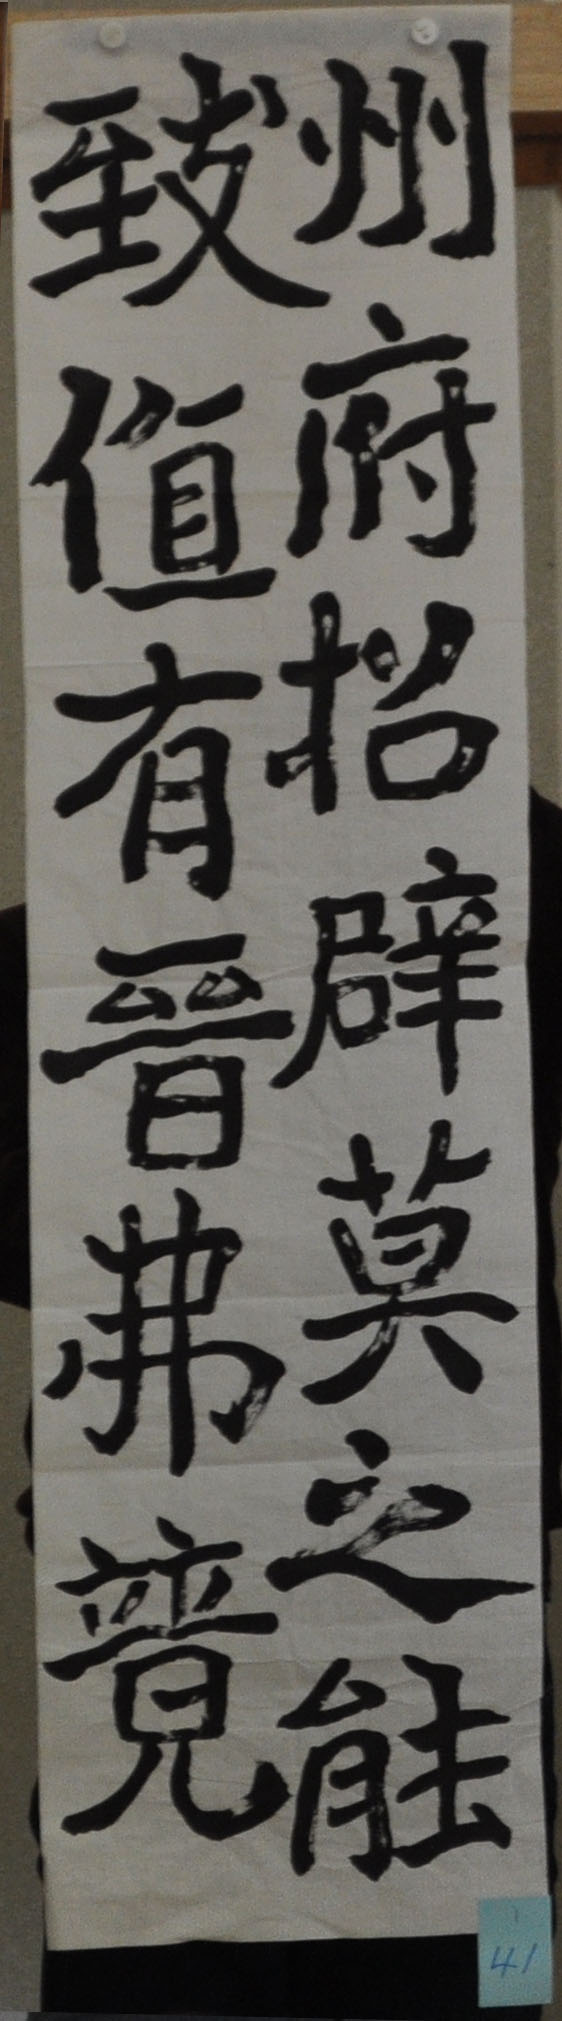 州府招辟莫之能
致值有晉弗竟
41